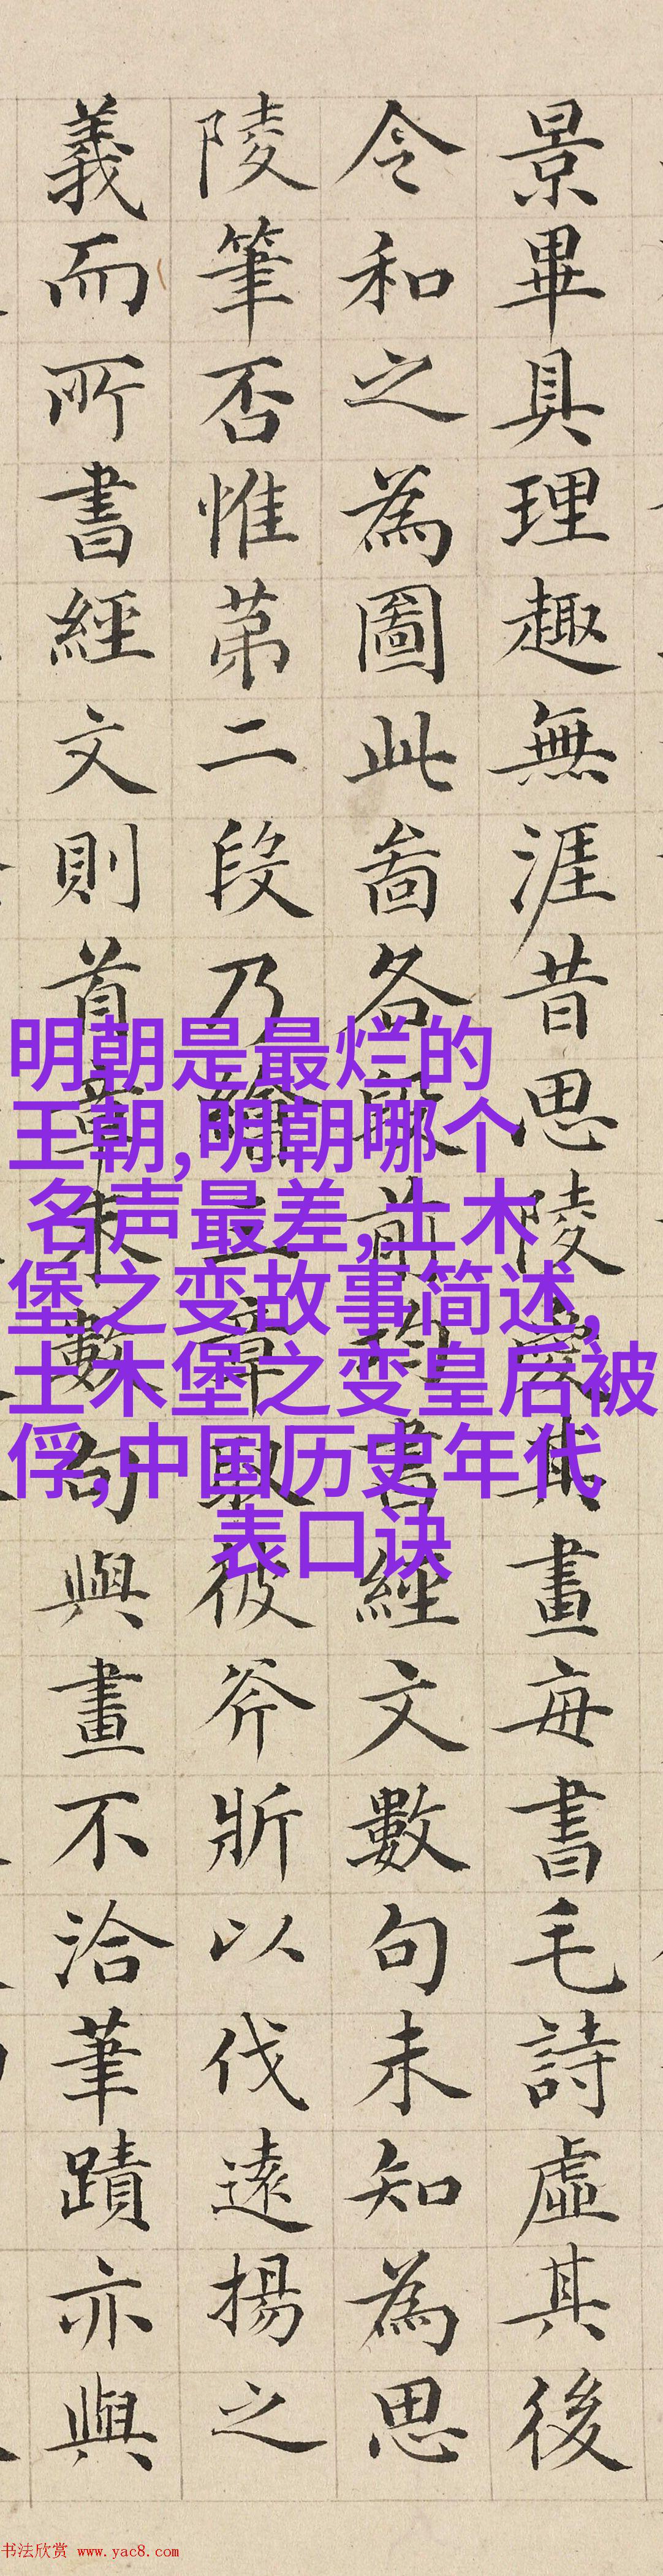 景畢具理趣無涯昔思陵其畫每書毛詩虛其後
令和之為圖此啚各前書經文數句未知為思
陵筆否惟苐二段乃三章取彼斧斨以伐遠揚之
義而所書經文則首章末數句與畫不洽筆蹟亦與
明朝是最烂的
王朝,明朝哪个
名声最差,土木
堡之变故事简述,
土木堡之变皇后被
俘,中国历史年代
表口诀
书法欣赏 www.yac8.com